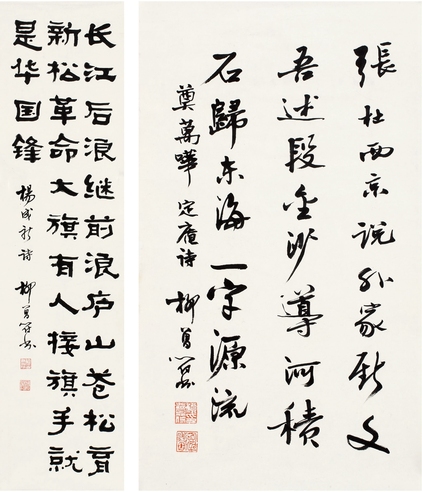 張杜西京說外家斯文
吾述段金沙導河積
石歸东海一字源流
奠萬嘩 定庵詩 柳曾符书
长江后浪继前浪庐山苍松育
新松革命大旗有人接旗手就
是华国锋
詩 柳曾符书